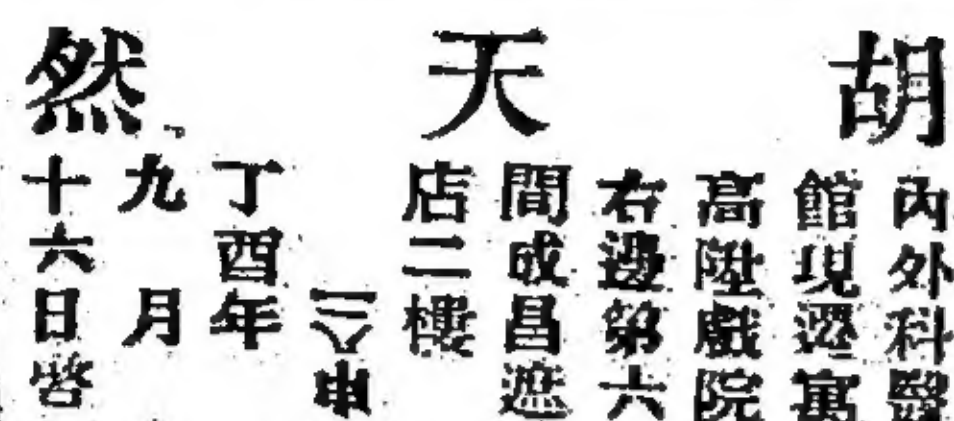 胡天然
內外科醫
館現遷寓
高陞戲院
右邊第六
間成昌遮
店二樓
三六申
丁酉年
九月
十六日啓